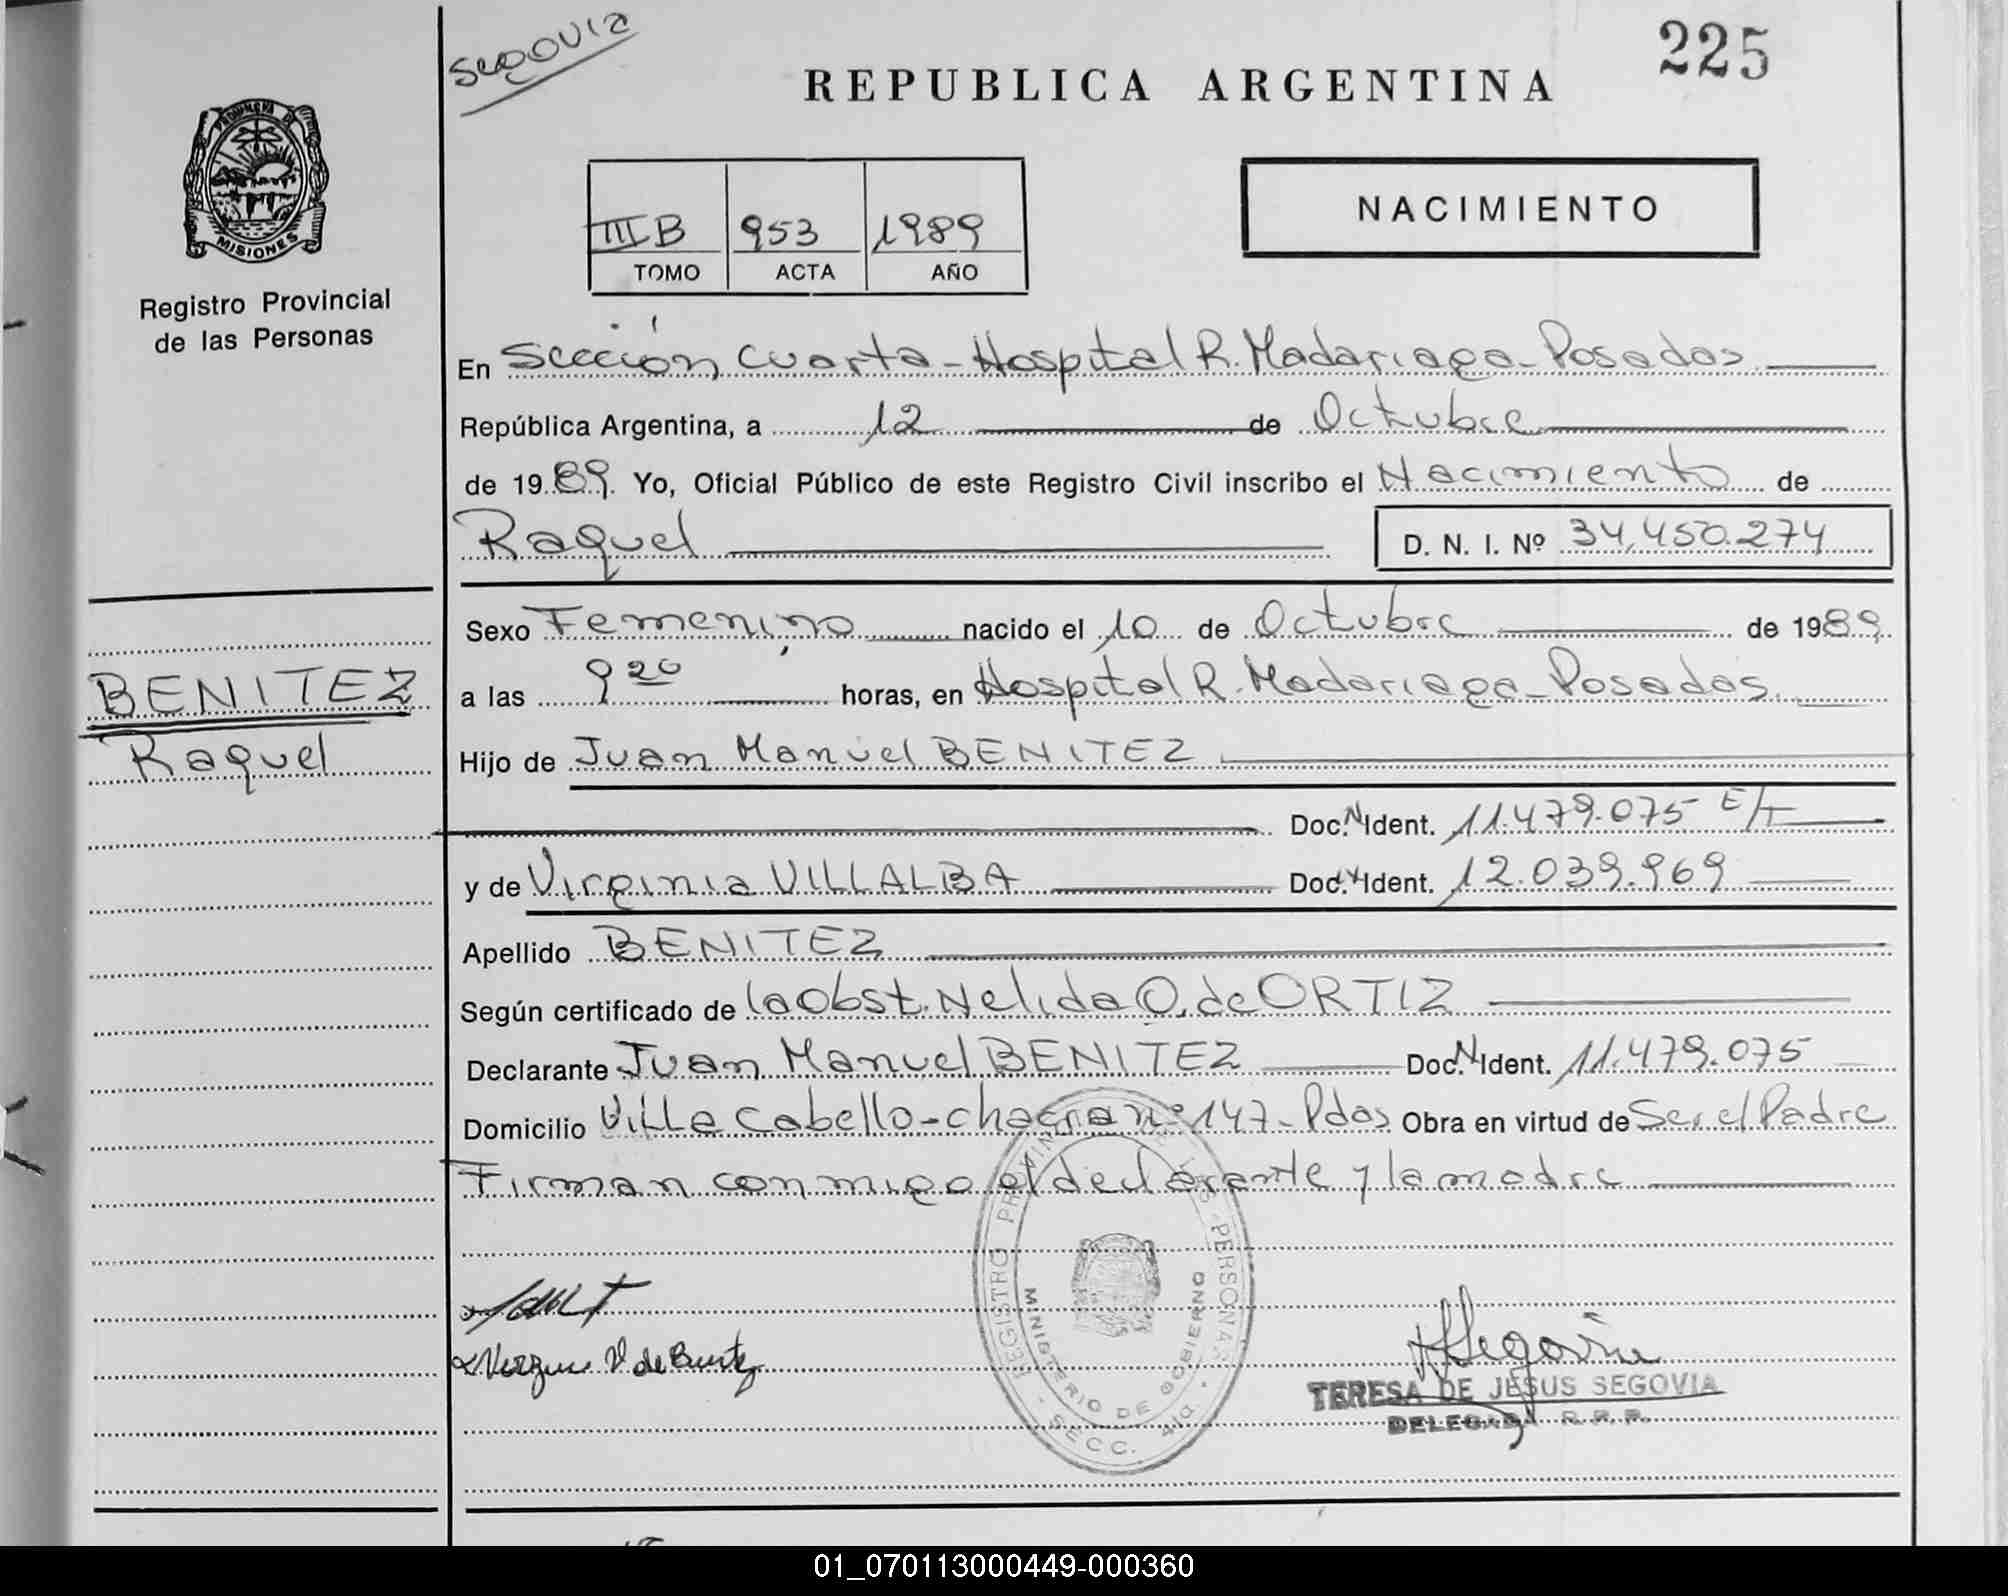 Segovia
225
REPUBLICA ARGENTINA
PROVINCIA DE
MISIONES
Registro Provincial
de las Personas
NACIMIENTO
III B 953 1989
TOMO ACTA AÑO
En Sección Cuarta - Hospital R. Madariaga - Posadas
República Argentina, a 12 de Octubre
de 1989. Yo, Oficial Público de este Registro Civil inscribo el Nacimiento de
Raquel D. N. I. Nº 34.450.274
Sexo Femenino nacido el 10 de Octubre de 1989
a las 9 20 horas, en Hospital R. Madariaga - Posadas.
BENITEZ
Raquel
Hijo de Juan Manuel BENITEZ
Doc. N. Ident. 11.479.075 E/T
y de Virginia VILLALBA Doc. N. Ident. 12.039.969
Apellido BENITEZ
Según certificado de la Obst. Nelida O. de ORTIZ
Declarante Juan Manuel BENITEZ Doc. N. Ident. 11.479.075
Domicilio Villa Cabello - chacra nº 147 - Pdas Obra en virtud de Ser el Padre
Firman conmigo el declarante y la madre
REGISTRO PROVINCIAL DE LAS PERSONAS
MINISTERIO DE GOBIERNO
SECC. 4ta.
V. de Benitez
Segovia
TERESA DE JESUS SEGOVIA
DELEGADA R. P. P.
01_070113000449-000360